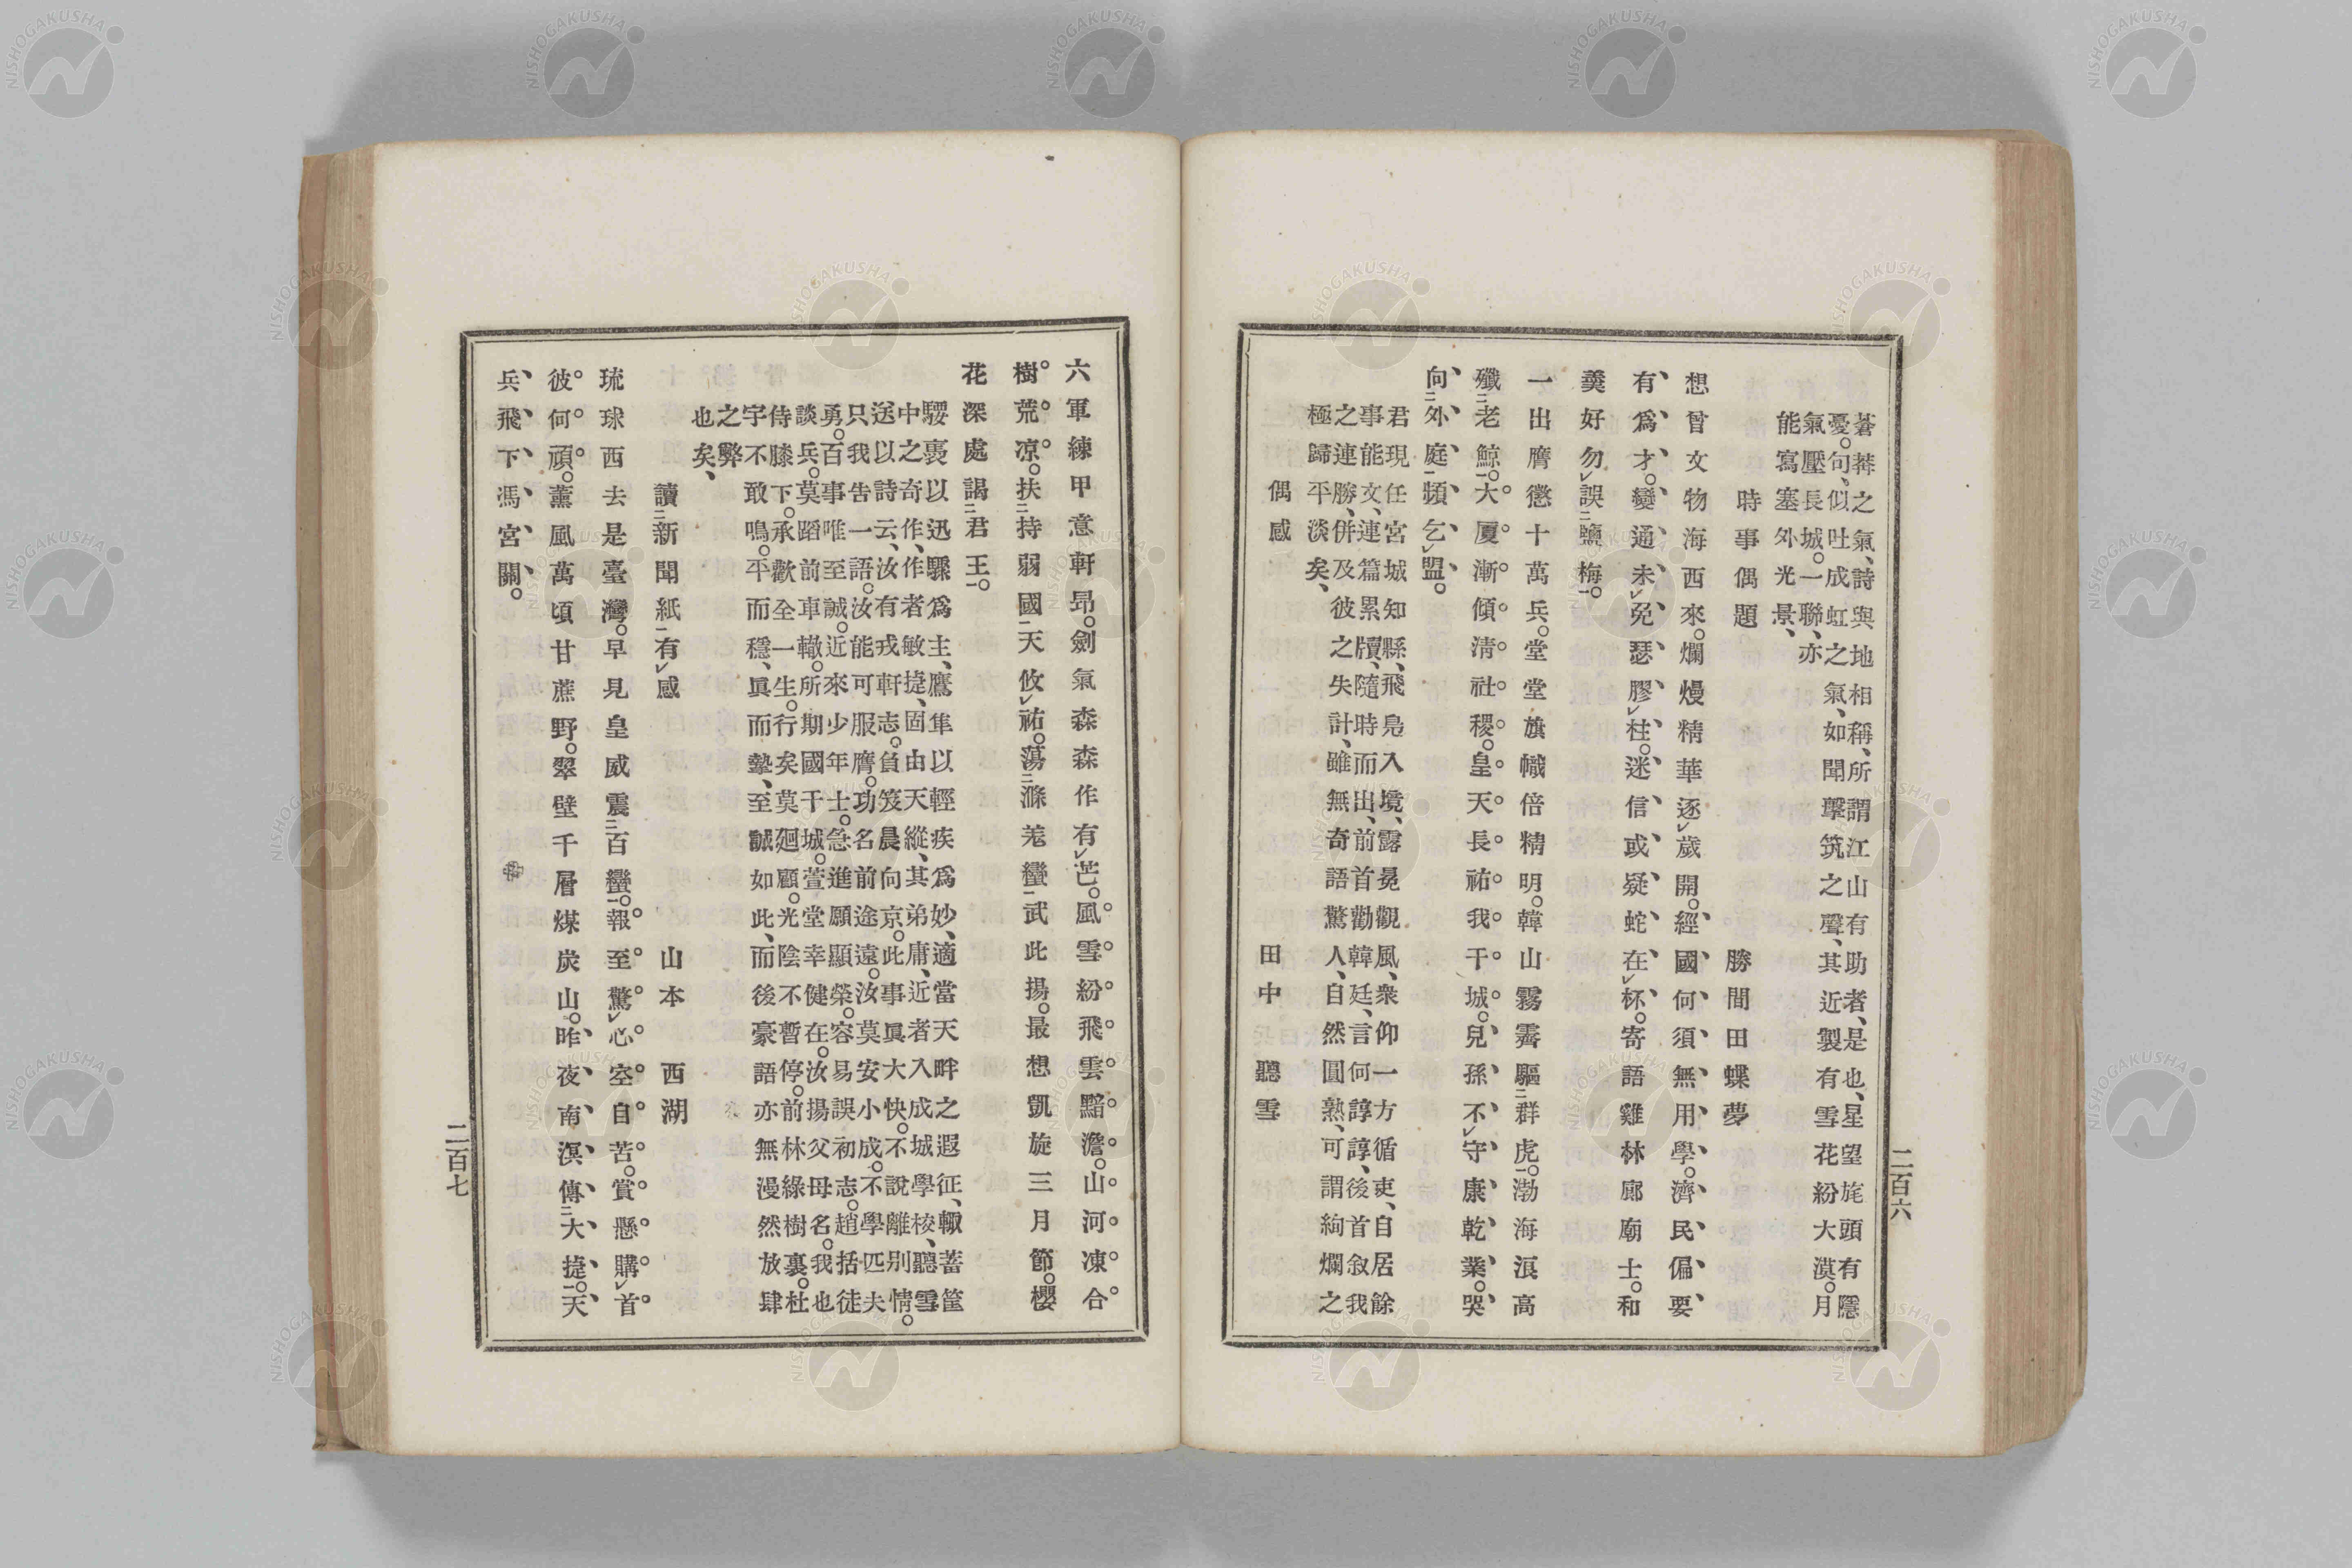 蒼莽之氣、詩與地相稱、所謂江山有助者、是也、星望旄頭有隱
憂。句、似吐成虹之氣、如聞擊筑之聲、其近製有雪花紛大漠。月
氣壓長城。一聯、亦
能寫塞外光景、
時事偶題　勝間田蝶夢
想曾文物海西來。爛熳精華逐歲開。經國何須無用學。濟民偏要
有爲才。變通未免瑟膠柱。迷信或疑蛇在杯。寄語雞林廊廟士。和
羹好勿誤鹽梅。
一出膺懲十萬兵。堂堂旗幟倍精明。韓山霧霽驅群虎。渤海浪高
殲老鯨。大厦漸傾淸社稷。皇天長祐我干城。兒孫不守康乾業。哭
向外庭頻乞盟。
君現任宮城知縣、飛鳧入境、露冕觀風、衆仰一方循吏、自居餘
事能文、連篇累牘、隨時而出、前首勸韓廷、言何諄諄、後首敘我
之連勝、併及彼之失計、雖無奇語驚人、自然圓熟、可謂絢爛之
極歸平淡矣、
偶感　田中　聽雪
二百六
六軍練甲意軒昂。劍氣森森作有芒。風雪紛飛雲黯澹。山河凍合
樹荒凉。扶持弱國天攸祐。蕩滌羗蠻武此揚。最想凱旋三月節。櫻
花深處謁君王。
騕褭以迅驟爲主、鷹隼以輕疾爲妙、適當天畔之遐征、輙蓄筐
中之奇作、作者敏捷、固由天縱、其弟庸、近者入成城學校、聽雪
送以詩云、汝有戎軒志。負笈晨向京。此事眞大快。不說離別情。
只我告一語。汝能可服膺。功名前途遠。汝莫安小成。不學匹夫
勇。百事唯至誠。近來少年士。急進願顯榮。容易誤初志。趙括徒
談兵。莫蹈前車轍。所期國干城。萱堂幸健在。汝揚父母名。我也
侍膝下。承歡全一生。行矣莫廻顧。光陰不暫停。前林綠樹裏。杜
宇不敢鳴。平而穩、眞而摯、至誠如此、而後豪語亦無漫然放肆
之弊
也矣、
讀新聞紙有感　山本　西湖
琉球西去是臺灣。早見皇威震百蠻。報至驚心空自苦。賞懸購首
彼何頑。薰風萬頃甘蔗野。翠壁千層煤炭山。昨夜南溟傳大捷。天
兵飛下馮宮關。
二百七